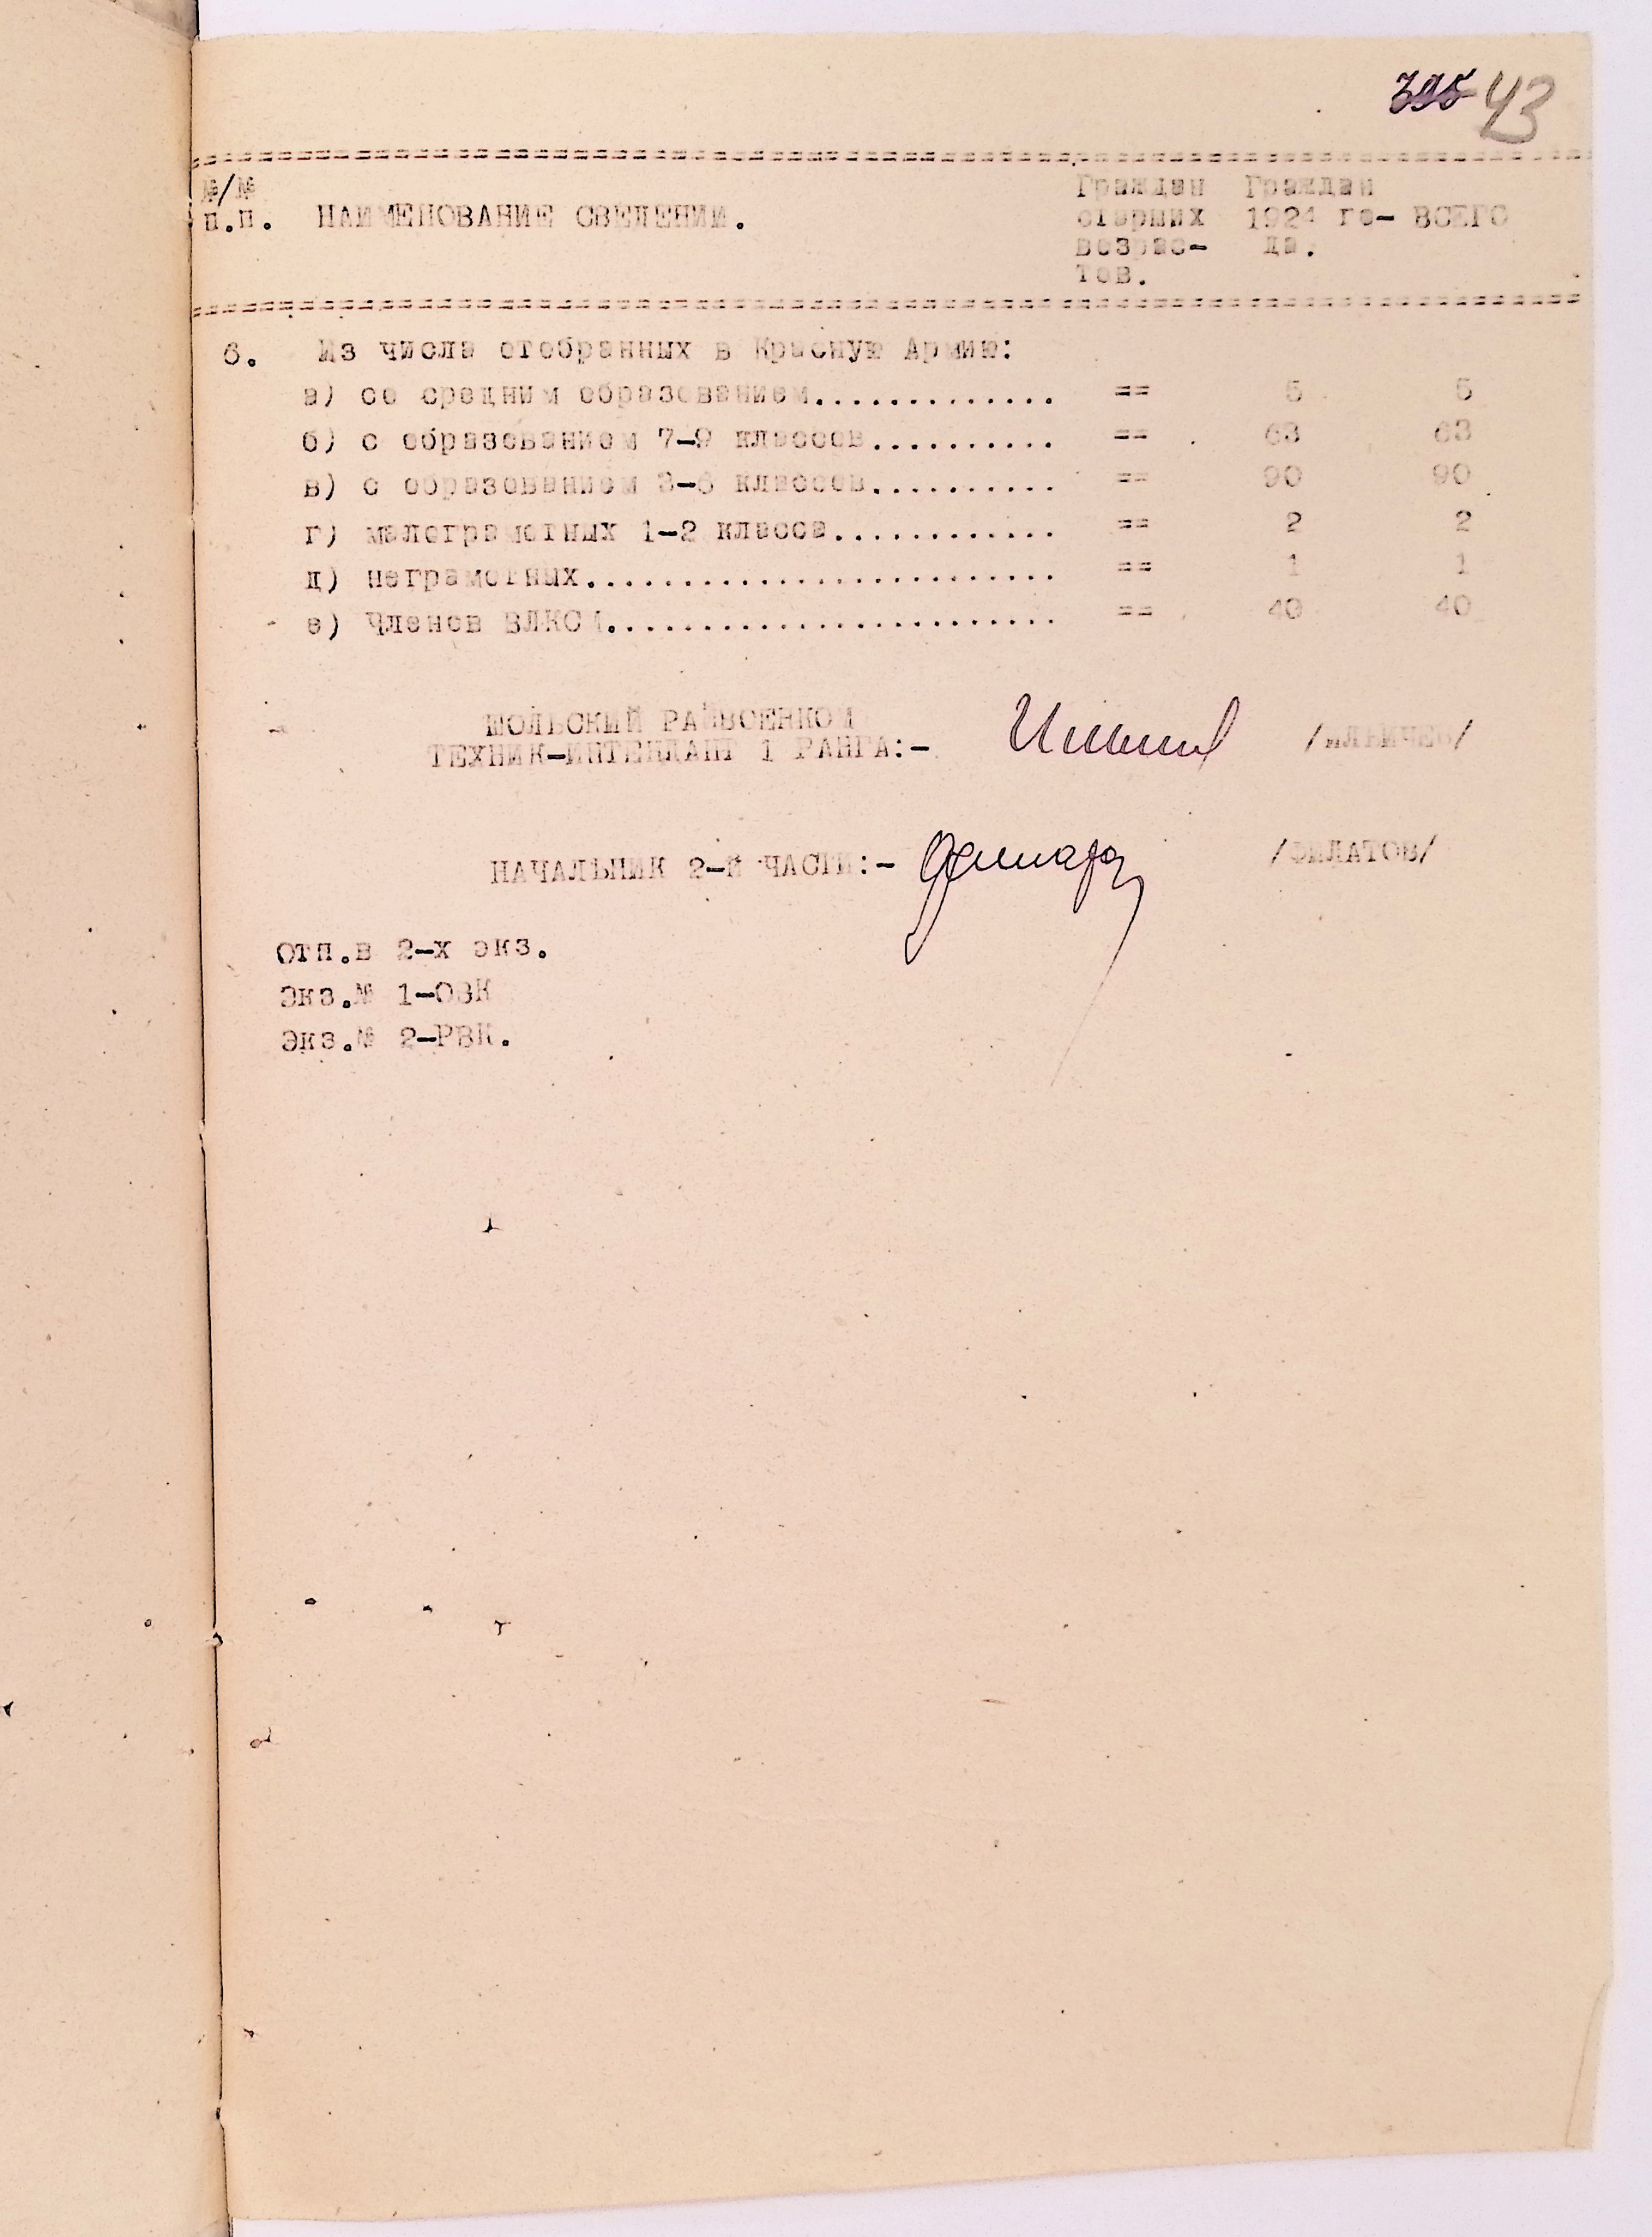 43
№/№ Граждан Граждан
п.п. НАИМЕНОВАНИЕ СВЕДЕНИЙ. старших 1924 го- ВСЕГО
возрас- да.
тов.
6. Из числа отобранных в Красную Армию:
а) со средним образованием............. == 5 5
б) с образованием 7-9 классов.......... == 63 63
в) с образованием 3-6 классов.......... == 90 90
г) малограмотных 1-2 класса............ == 2 2
д) неграмотных......................... == 1 1
е) Членов ВЛКСМ........................ == 40 40
ШОЛЬСКИЙ РАЙВОЕНКОМ
ТЕХНИК-ИНТЕНДАНТ 1 РАНГА:- /ИЛЬИЧЕВ/
НАЧАЛЬНИК 2-Й ЧАСТИ:- /ФИЛАТОВ/
Отп.в 2-х экз.
Экз.№ 1-ОВК
Экз.№ 2-РВК.